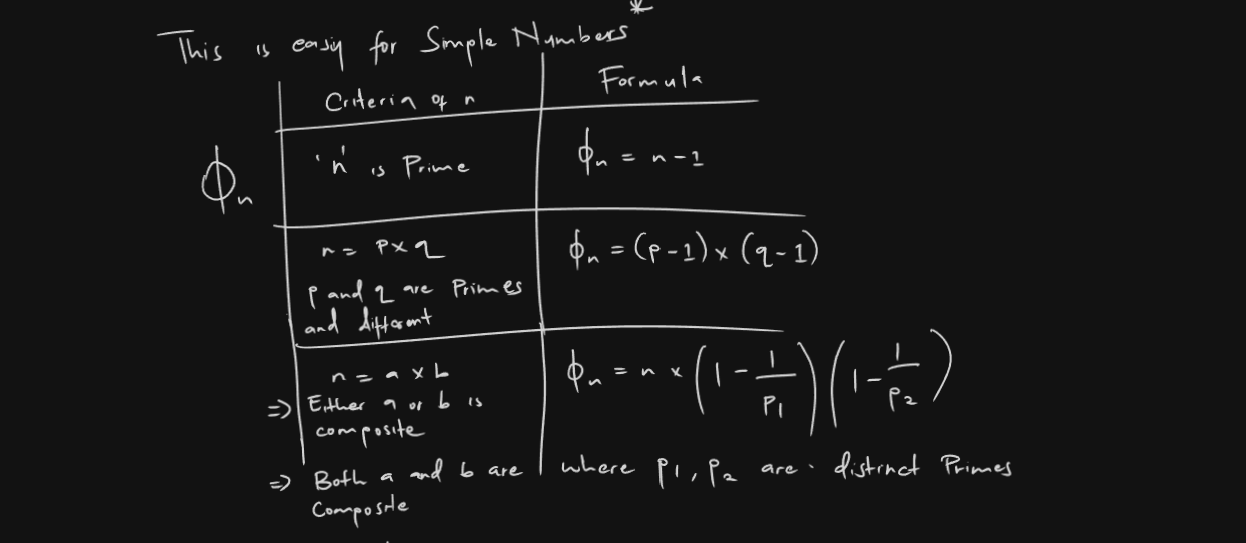 This is easy for Simple Numbers*
Criteria of n
Formula
ϕn
'n' is Prime
ϕn = n - 1
n = P × q
p and q are Primes
and different
ϕn = (p - 1) × (q - 1)
n = a × b
⇒ Either a or b is
composite
⇒ Both a and b are
Composite
ϕn = n × (1 - 1/P1) (1 - 1/P2)
where p1, p2 are · distinct Primes